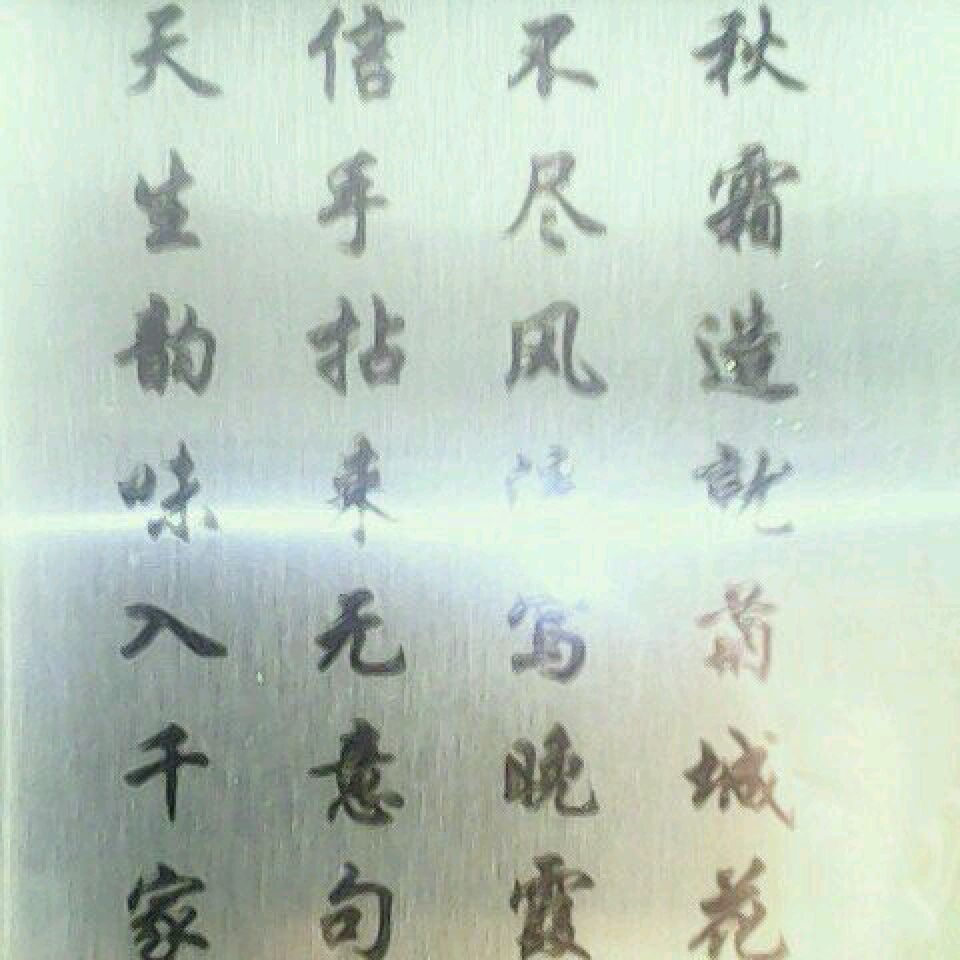 秋霜造就菊城花
不尽风流写晚霞
信手拈来无意句
天生韵味入千家